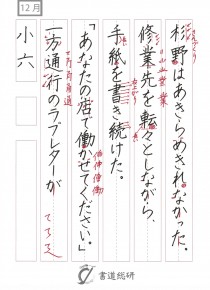 12月
杉野はあきらめきれなかった。
修業先を転々としながら、
手紙を書き続けた。
「あなたの店で働かせてください。」
一方通行のラブレターが
小六
書道総研